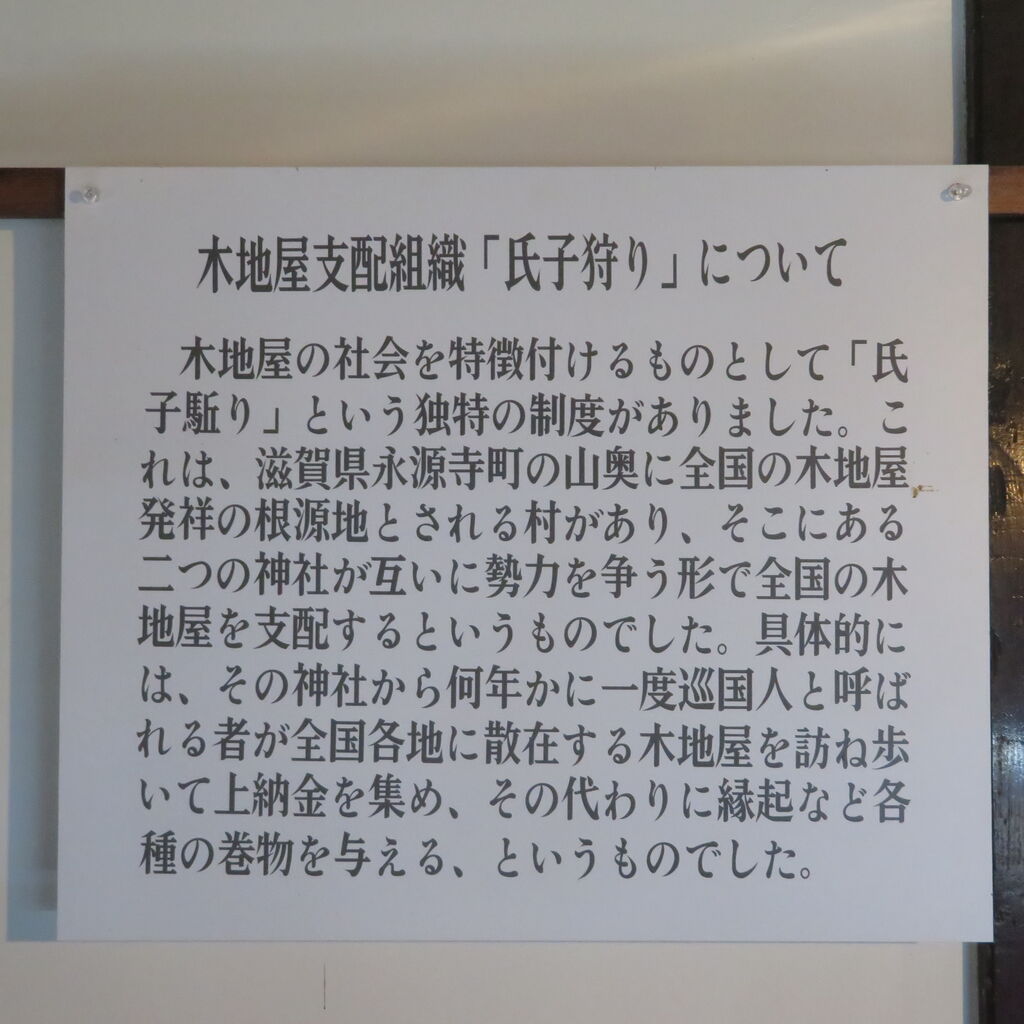 木地屋支配組織「氏子狩り」について
木地屋の社会を特徴付けるものとして「氏
子駈り」という独特の制度がありました。こ
れは、滋賀県永源寺町の山奥に全国の木地屋
発祥の根源地とされる村があり、そこにある
二つの神社が互いに勢力を争う形で全国の木
地屋を支配するというものでした。具体的に
は、その神社から何年かに一度巡国人と呼ば
れる者が全国各地に散在する木地屋を訪ね歩
いて上納金を集め、その代わりに縁起など各
種の巻物を与える、というものでした。